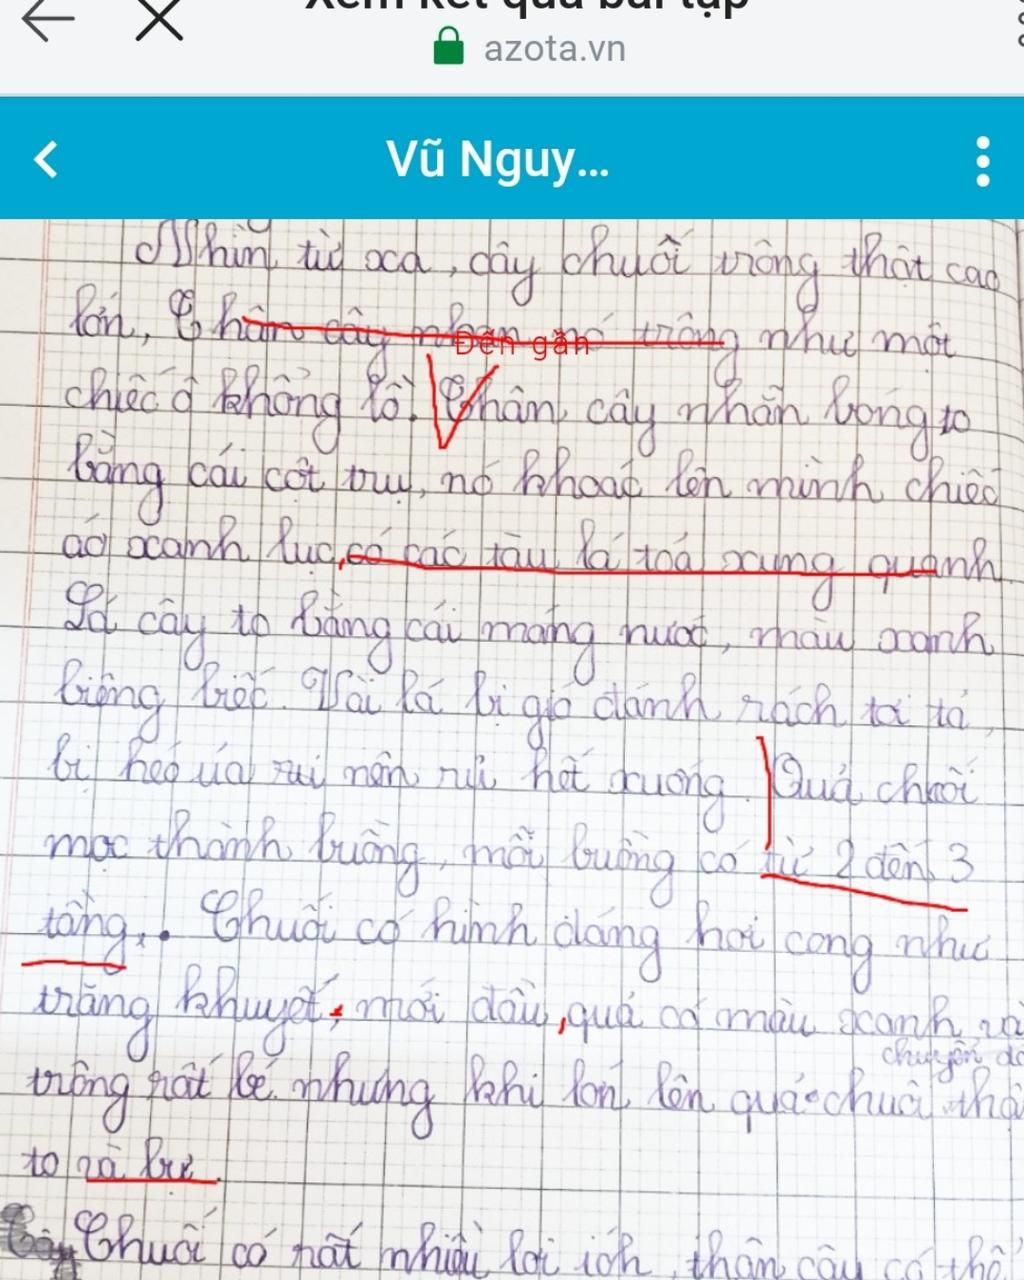 Xem kết quả bài tập
azota.vn
Vũ Nguy...
Nhìn từ xa, cây chuối trông thật cao
lớn, Thân cây nhẵn nó trông như một
Đến gần
chiếc ô khổng lồ. Thân cây nhẵn bóng to
bằng cái cột trụ, nó khoác lên mình chiếc
áo xanh lục, có các tàu lá toả xung quanh
Lá cây to bằng cái máng nước, màu xanh
biêng biếc. Vài lá bị gió đánh rách tơi tả,
bị héo úa nên rủ hết xuống. Quả chuối
mọc thành buồng, mỗi buồng có từ 2 đến 3
tầng,. Chuối có hình dáng hơi cong như
trăng khuyết, mới đầu, quả có màu xanh và
chuyển
trông rất bé nhưng khi lớn lên quả chuối
to và bự.
Chuối có rất nhiều lợi ích, thân cây có thể